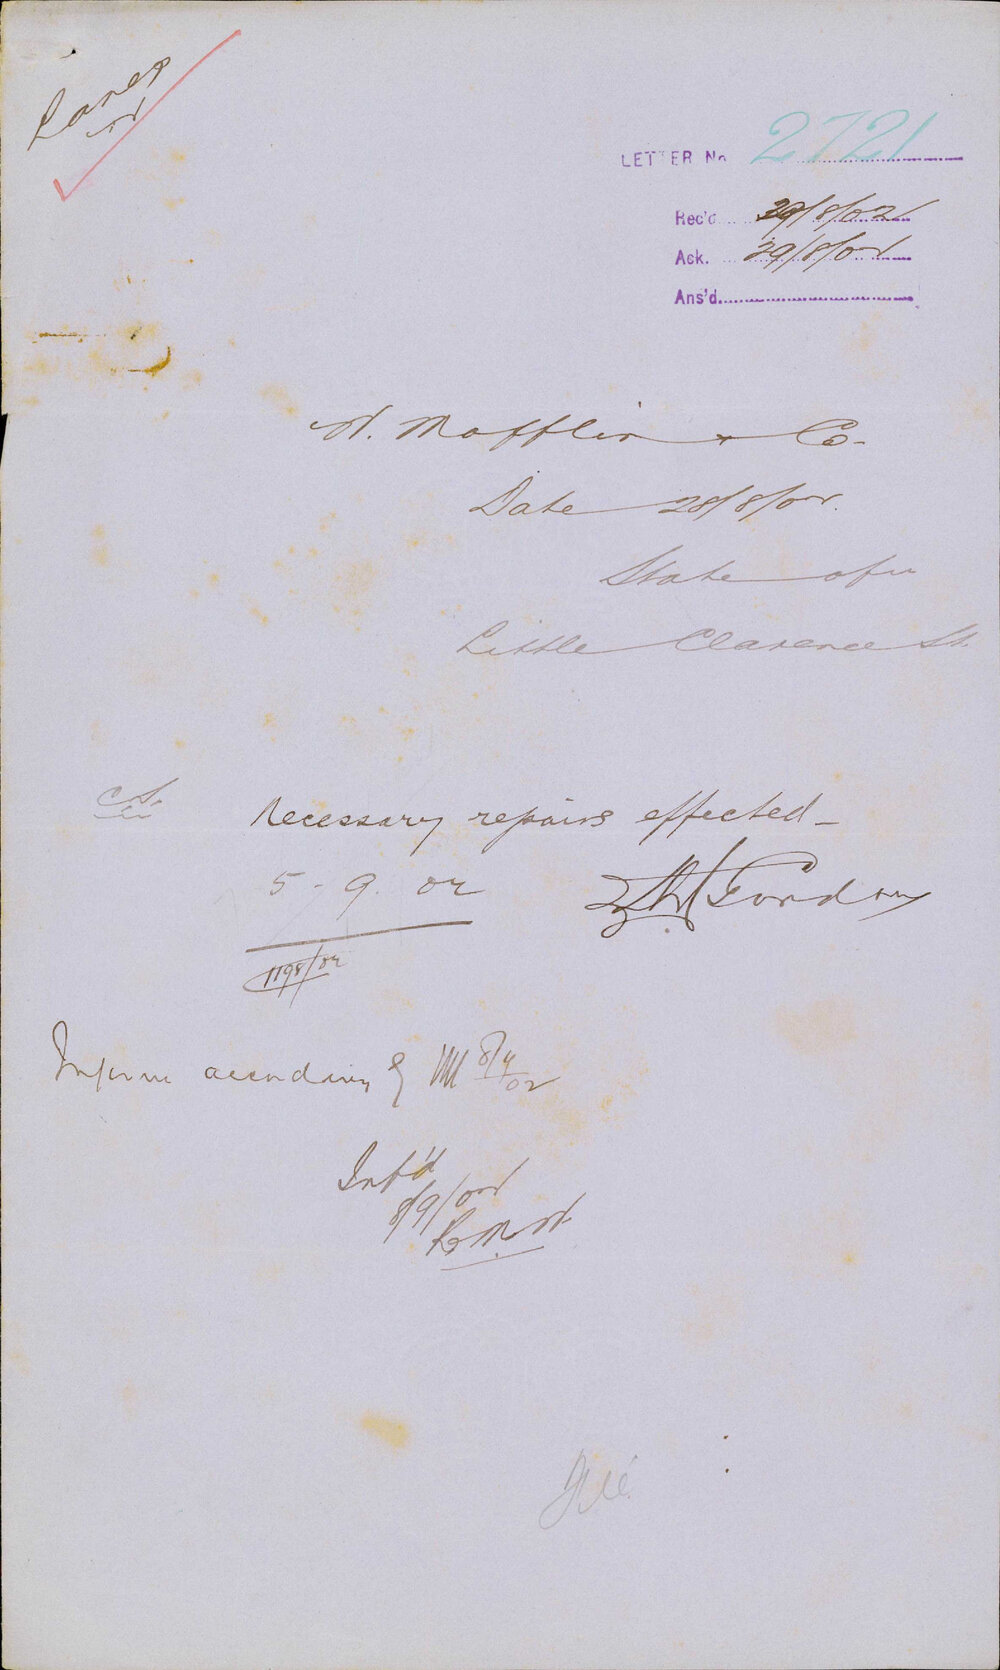 Lanes
LETTER No. 2721
Rec'd 29/8/02
Ack. 29/8/02
Ans'd.
& Co.
Date 28/8/02.
State of
Little Clarence St.
Necessary repairs effected
5-9.02
Gordon
1198/02
Inform accordingly
Inf'd
8/9/02